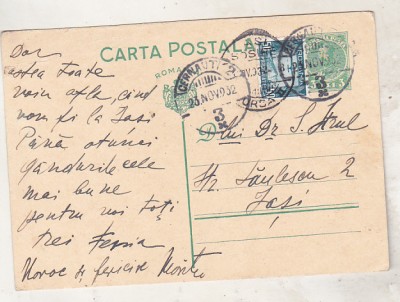 CARTA POSTALA
ROMANIA
CERNAUTI 2
23.NOV.932
3
Dor
astea toate
voiu afla, când
vom fi la Iași
Până atunci
gândurile cele
mai bune
pentru voi toți
trei
Noroc și fericire
Dlui Dr. S.
Str. Săulescu 2
Iași